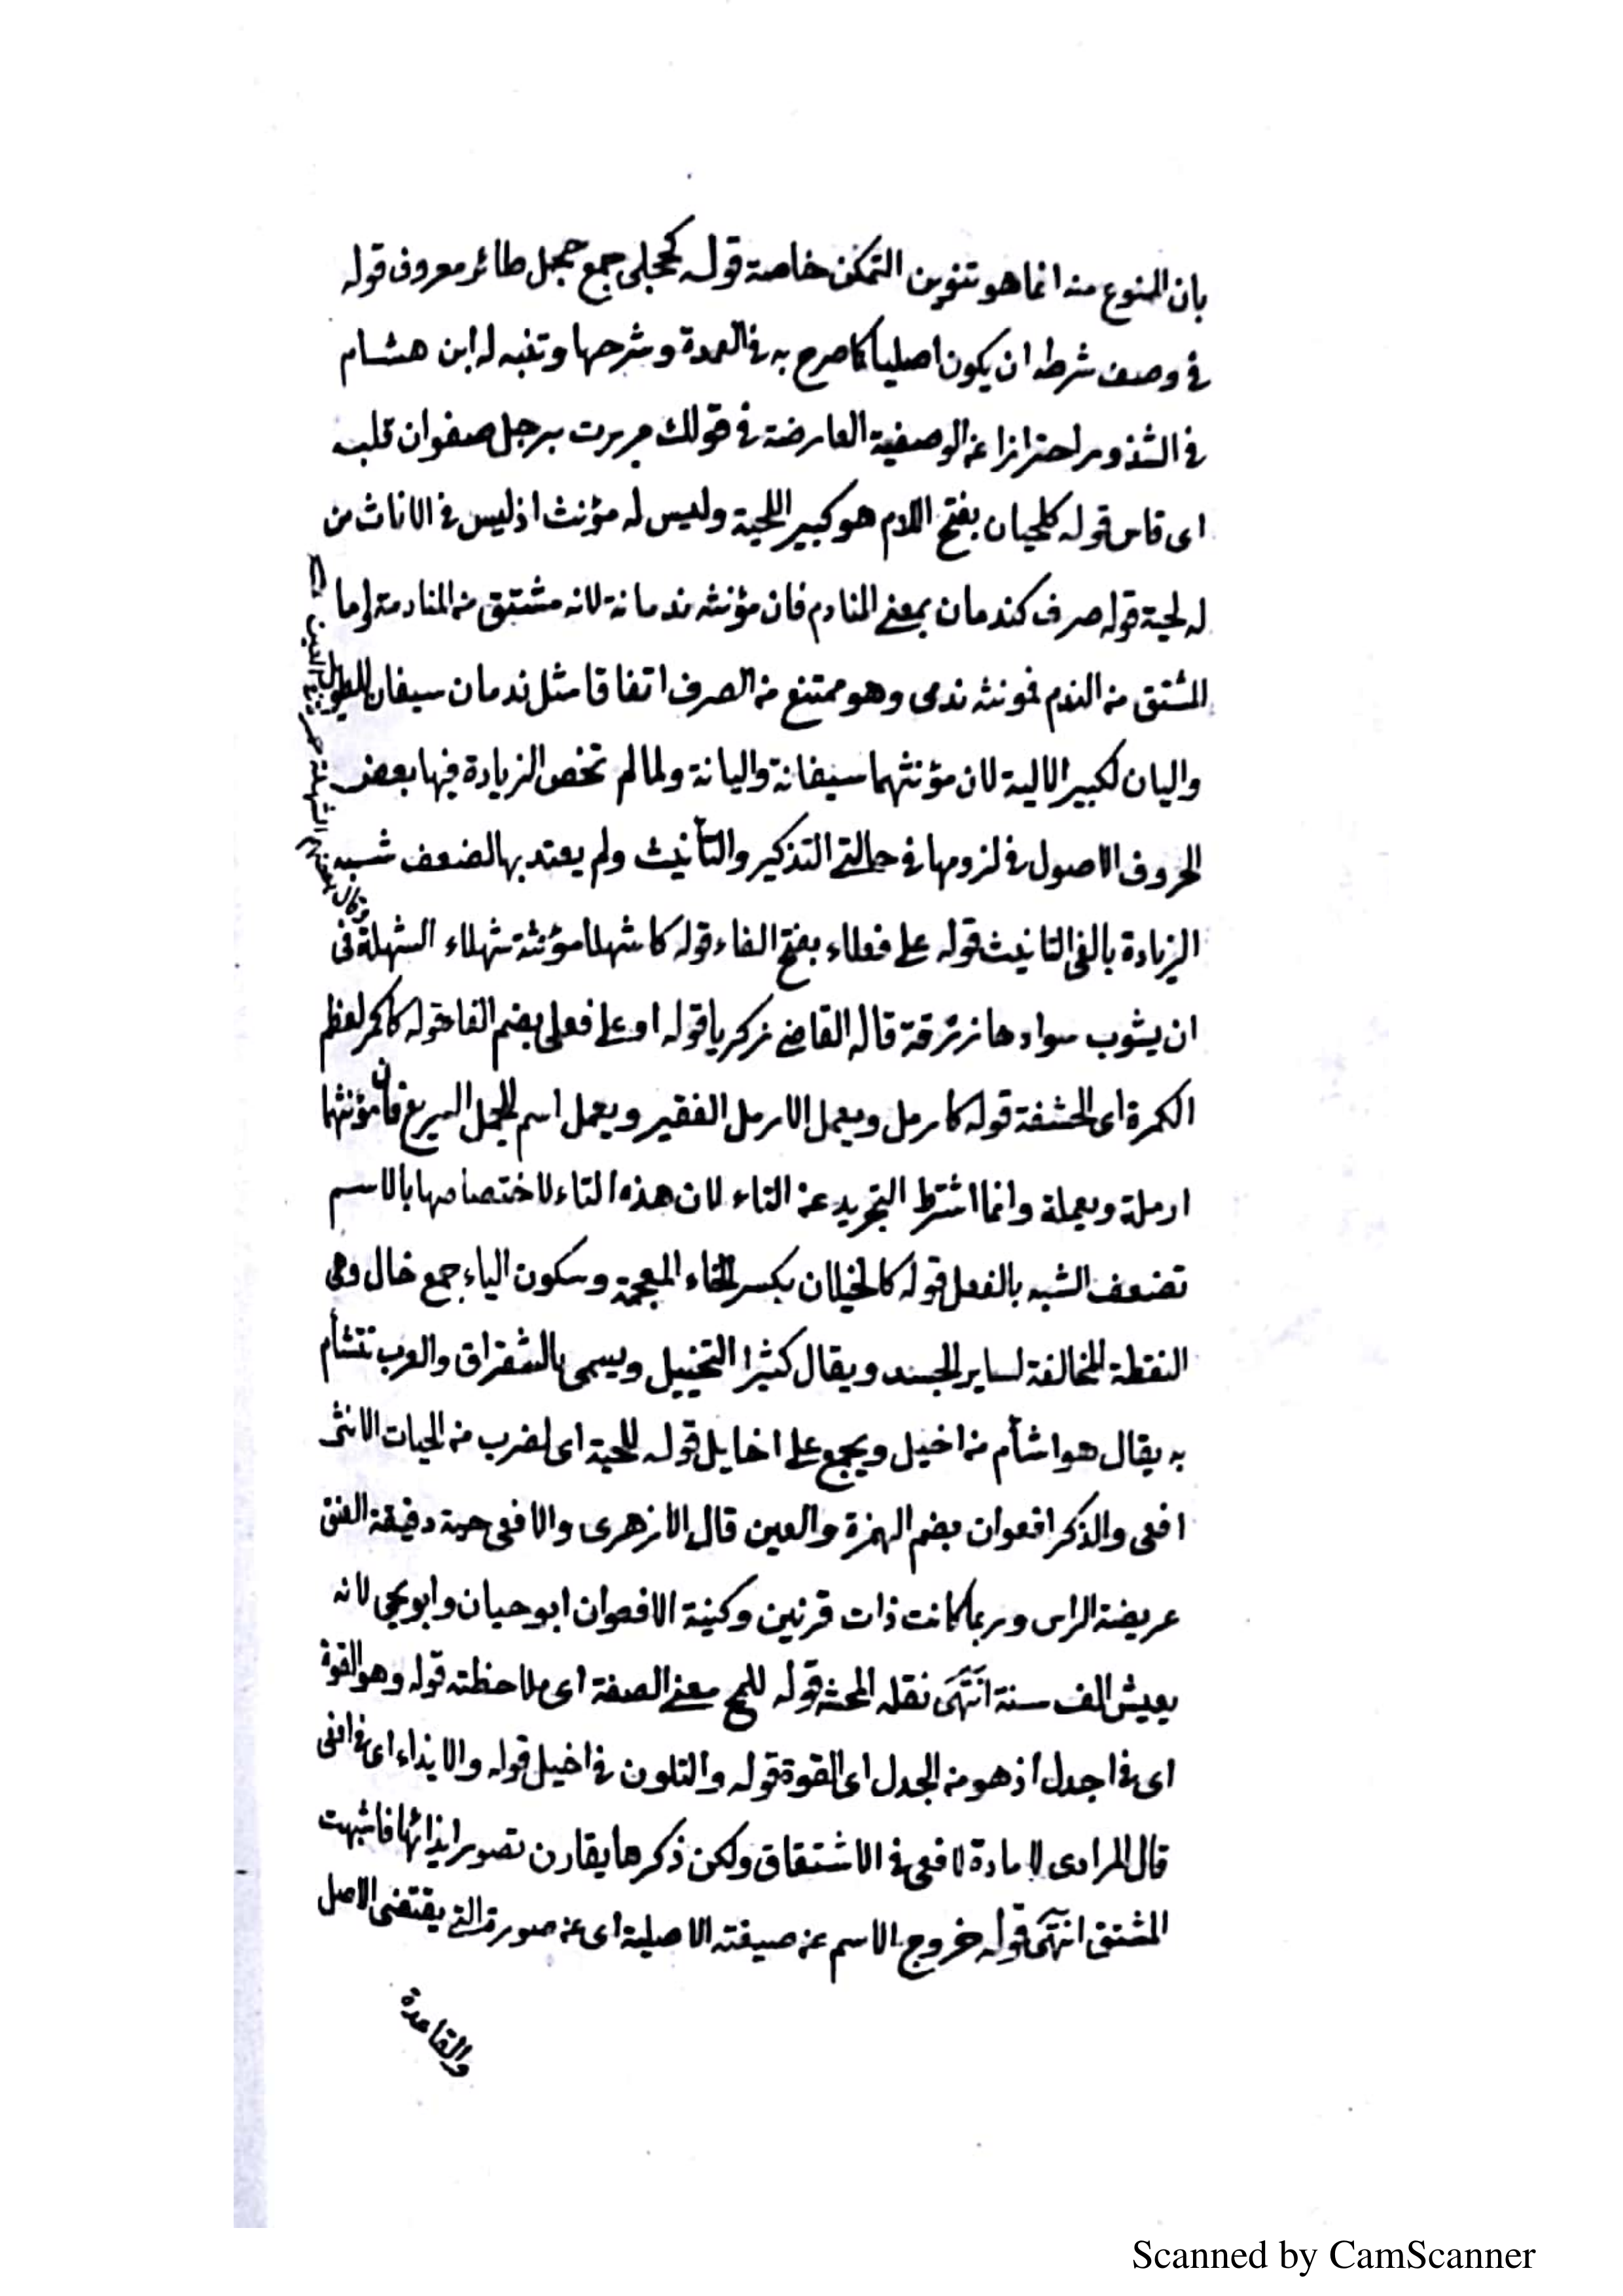 بان الممنوع منه انما هو تنوين التمكن خاصة قوله كحجلى جمع حجل طائر معروف قوله
فى وصف شرطه ان يكون اصليا كما صرح به فى العمدة وشرحها وتنبه له ابن هشام
فى الشذور احترازا عن الوصفية العارضة فى قولك مررت برجل صفوان قلبه
اى قاس قوله كلحيان بفتح اللام هو كبير اللحية وليس له مؤنث اذ ليس فى الاناث من
له لحية قوله صرف كندمان بمعنى المنادم فان مؤنثه ندمانة لانه مشتق من المنادمة واما
المشتق من الندم فمونثه ندمى وهو ممتنع من الصرف اتفاقا مثل ندمان سيفان للطويل
واليان لكبير الالية لان مؤنثهما سيفانة واليانة ولما لم تخص الزيادة فيها بعض
الحروف الاصول فى لزومها فى حالتى التذكير والتأنيث ولم يعتد بها لضعف شبه
الزيادة بالفى التانيث قوله على فعلاء بفتح الفاء قوله كاشهلا مؤنثة شهلاء الشهلة فى
ان يشوب سوادها زرقة قاله القاضى زكريا قوله او على فعلى بضم الفاء قوله كاكمر لعظم
الكمرة اى الحشفة قوله كارمل ويعمل الارمل الفقير ويعمل اسم للجمل السريع فان مؤنثها
ارملة ويعملة وانما اشترط التجريد عن التاء لان هذه التاء لاختصاصها بالاسم
تضعف الشبه بالفعل قوله كالخيلان بكسر الخاء المعجمة وسكون الياء جمع خال وهى
النقطة المخالفة لساير الجسد ويقال كثيرا التخييل ويسمى بالشقراق والعرب تتشأم
به يقال هو اشأم من اخيل ويجمع على اخايل قوله للحية اى لضرب من الحيات الانثى
افعى والذكر افعوان بضم الهمزة والعين قال الازهرى والافعى حية دقيقة العنق
عريضة الراس وربما كانت ذات قرنين وكنية الافعوان ابو حيان وابو يحيى لانه
يعيش الف سنة انتهى نقله المحشى قوله للمح معنى الصفة اى ملاحظته قوله وهو القوة
اى فى اجدل اذ هو من الجدل اى القوة قوله والتلون فى اخيل قوله والايذاء اى فى افعى
قال المرادى لا مادة لافعى فى الاشتقاق ولكن ذكرها يقارن تصور ايذائها فاشبهت
المشتق انتهى قوله خروج الاسم عن صيغته الاصلية اى عن صورته التى يقتضى الاصل
والقاعدة
Scanned by CamScanner